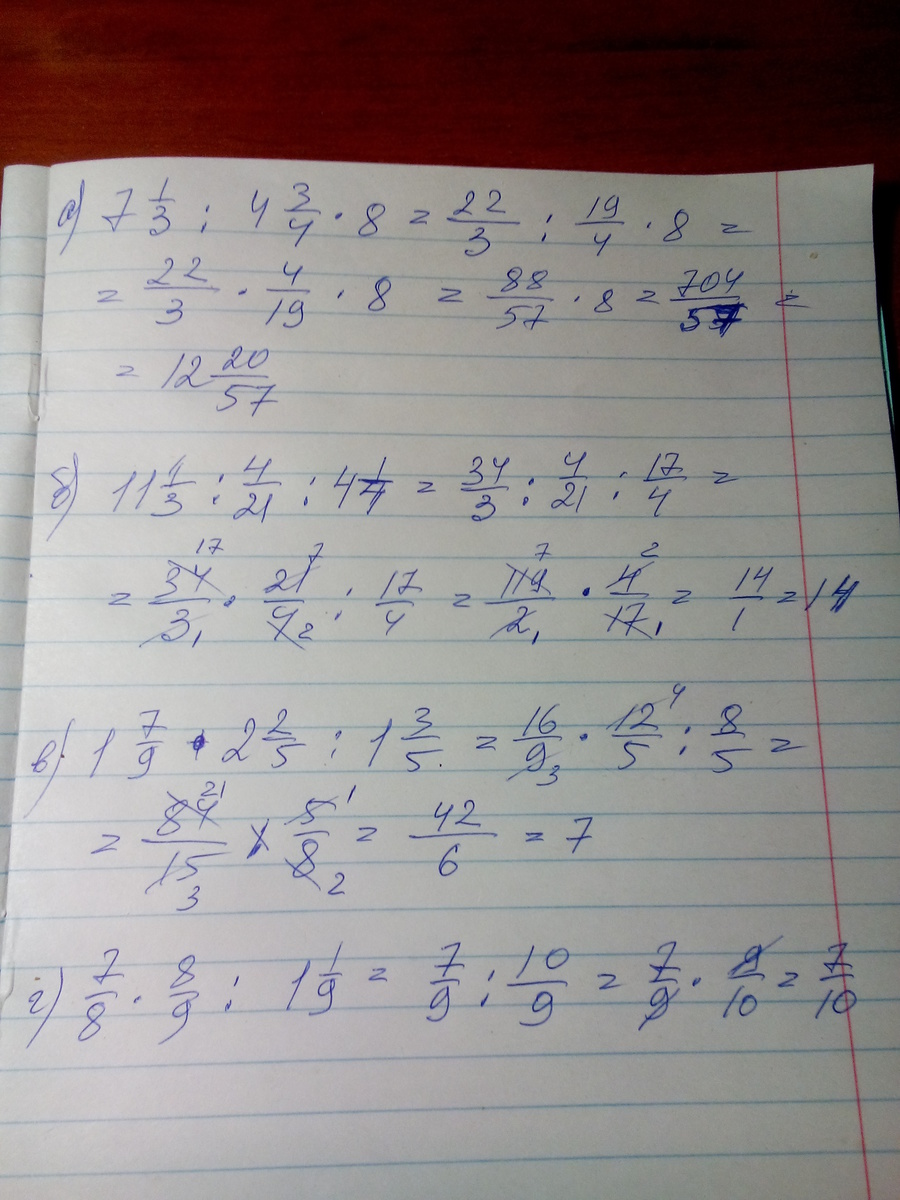 а) 7 1/3 : 4 3/4 · 8 = 22/3 : 19/4 · 8 =
= 22/3 · 4/19 · 8 = 88/57 · 8 = 704/57 =
= 12 20/57
б) 11 1/3 : 4/21 : 4 1/4 = 34/3 : 4/21 : 17/4 =
= 34 17/3 1 · 21 7/4 2 : 17/4 = 119 7/2 1 · 4 2/17 1 = 14/1 = 14
в) 1 7/9 · 2 2/5 : 1 3/5 = 16/9 3 · 12 4/5 : 8/5 =
= 84 21/15 3 × 5 1/8 2 = 42/6 = 7
г) 7/8 · 8/9 : 1 1/9 = 7/9 : 10/9 = 7/9 · 9/10 = 7/10